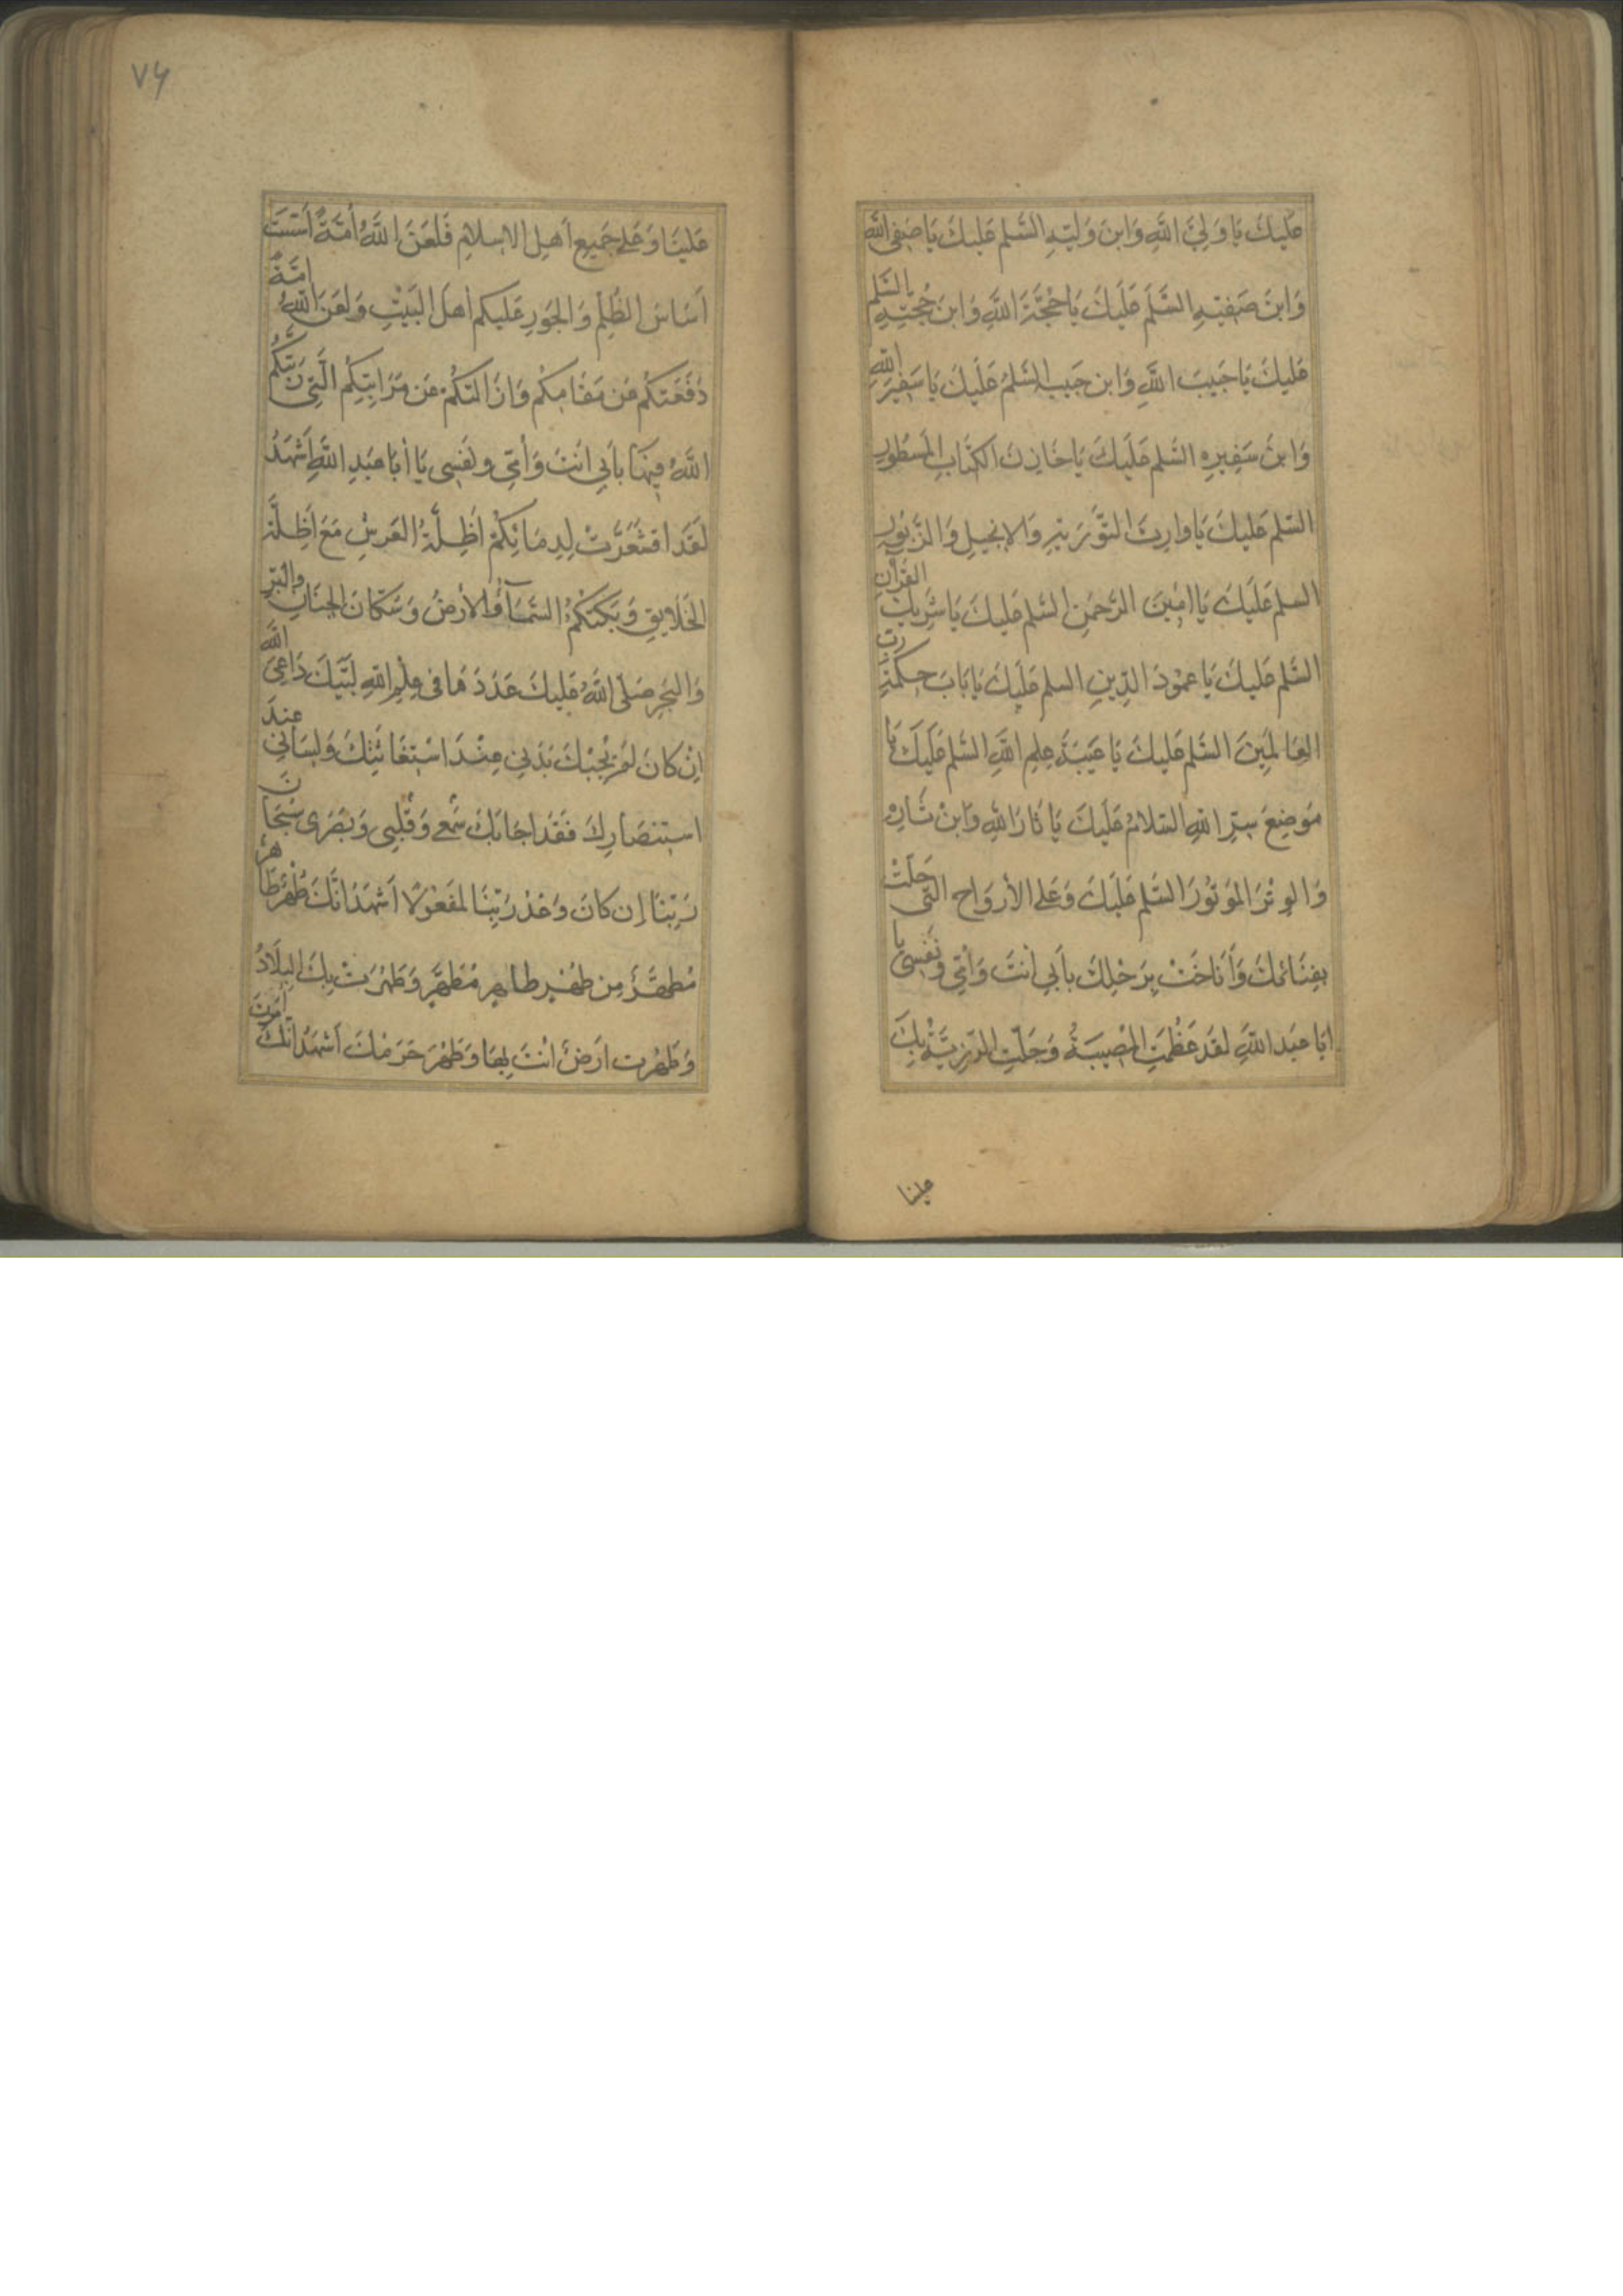 عَلَيْكَ يَا وَلِيَّ اللَّهِ وَابْنَ وَلِيِّهِ السَّلم عَلَيْكَ يَا صَفِي اللَّهِ
وَابْنَ صَفِيِّهِ السَّلم عَلَيْكَ يَا حُجَّةَ اللَّهِ وَابْنَ حُجَّتِهِ السَّلم
عَلَيْكَ يَا حَبِيبَ اللَّهِ وَابْنَ حَبِيبِهِ السَّلم عَلَيْكَ يَا سَفِيرَ اللَّهِ
وَابْنَ سَفِيرِهِ السَّلم عَلَيْكَ يَا خَازِنَ الْكِتَابِ الْمَسْطُورِ
السَّلم عَلَيْكَ يَا وَارِثَ التَّوْرَيةِ وَالإنجِيلِ وَالزَّبُورِ
السلم عَلَيْكَ يَا امِينَ الرَّحْمنِ السَّلم عَلَيْكَ يَا شَرِيكَ القُرْآنِ
السَّلم عَلَيْكَ يَا عَمُودَ الدِّينِ السلم عَلَيْكَ يَا بَابَ حِكْمَةِ رَبِّ
الْعَالَمِينَ السَّلم عَلَيْكَ يَا عَيْبَةَ عِلْمِ اللَّهِ السَّلم عَلَيْكَ يَا
مَوْضِعَ سِرِّ اللَّهِ السَّلامُ عَلَيْكَ يَا ثَارَ اللَّهِ وَابْنَ ثَارِهِ
وَالْوِتْرَ الْمَوْتُورَ السَّلم عَلَيْكَ وَعَلَى الأَرْوَاحِ الَّتِي حَلَّتْ
بِفِنَائِكَ وَأَنَاخَتْ بِرَحْلِكَ بِأَبِي أَنْتَ وَأُمِّي وَنَفْسِي يَا
ابَا عَبْدِ اللَّهِ لَقَدْ عَظُمَتِ الْمُصِيبَةُ وَجَلَّتِ الرَّزِيَّةُ بِكَ
علينا
٧٤
عَلَيْنَا وَعَلَى جَمِيعِ أَهْلِ الاسْلامِ فَلَعَنَ اللَّهُ أُمَّةً أَسَّسَتْ
أَسَاسَ الظُّلْمِ وَالْجَوْرِ عَلَيْكُمْ أَهْلَ الْبَيْتِ وَلَعَنَ اللَّهُ أُمَّةً
دَفَعَتْكُمْ عَنْ مَقَامِكُمْ وَازَالَتْكُمْ عَنْ مَرَاتِبِكُمُ الَّتِي رَتَّبَكُمُ
اللَّهُ فِيهَا بِأَبِي أَنْتَ وَأُمِّي وَنَفْسِي يَا أَبَا عَبْدِ اللَّهِ أَشْهَدُ
لَقَدِ اقْشَعَرَّتْ لِدِمَائِكُمْ أَظِلَّةُ الْعَرْشِ مَعَ أَظِلَّةِ
الْخَلايِقِ وَبَكَتْكُمُ السَّمَآءُ وَالأَرْضُ وَسُكَّانُ الْجِنَانِ وَالْبَرِّ
وَالْبَحْرِ صَلَّى اللَّهُ عَلَيْكَ عَدَدَ مَا فِي عِلْمِ اللَّهِ لَبَّيْكَ دَاعِيَ اللَّهِ
إِنْ كَانَ لَمْ يُجِبْكَ بَدَنِي عِنْدَ اسْتِغَاثَتِكَ وَلِسَانِي عِنْدَ
اسْتِنْصَارِكَ فَقَدْ اجَابَكَ سَمْعِي وَقَلْبِي وَبَصَرِي سُبْحَانَ
رَبِّنَا إِن كَانَ وَعْدُ رَبِّنَا لَمَفْعُولًا أَشْهَدُ انَّكَ طُهْرٌ طَاهِرٌ
مُطَهَّرٌ مِنْ طُهْرٍ طَاهِرٍ مُطَهَّرٍ وَطَهُرَتْ بِكَ الْبِلادُ
وَطَهُرَتْ ارْضٌ انْتَ بِهَا وَطَهُرَ حَرَمُكَ أَشْهَدُ انَّكَ أَمَرْتَ